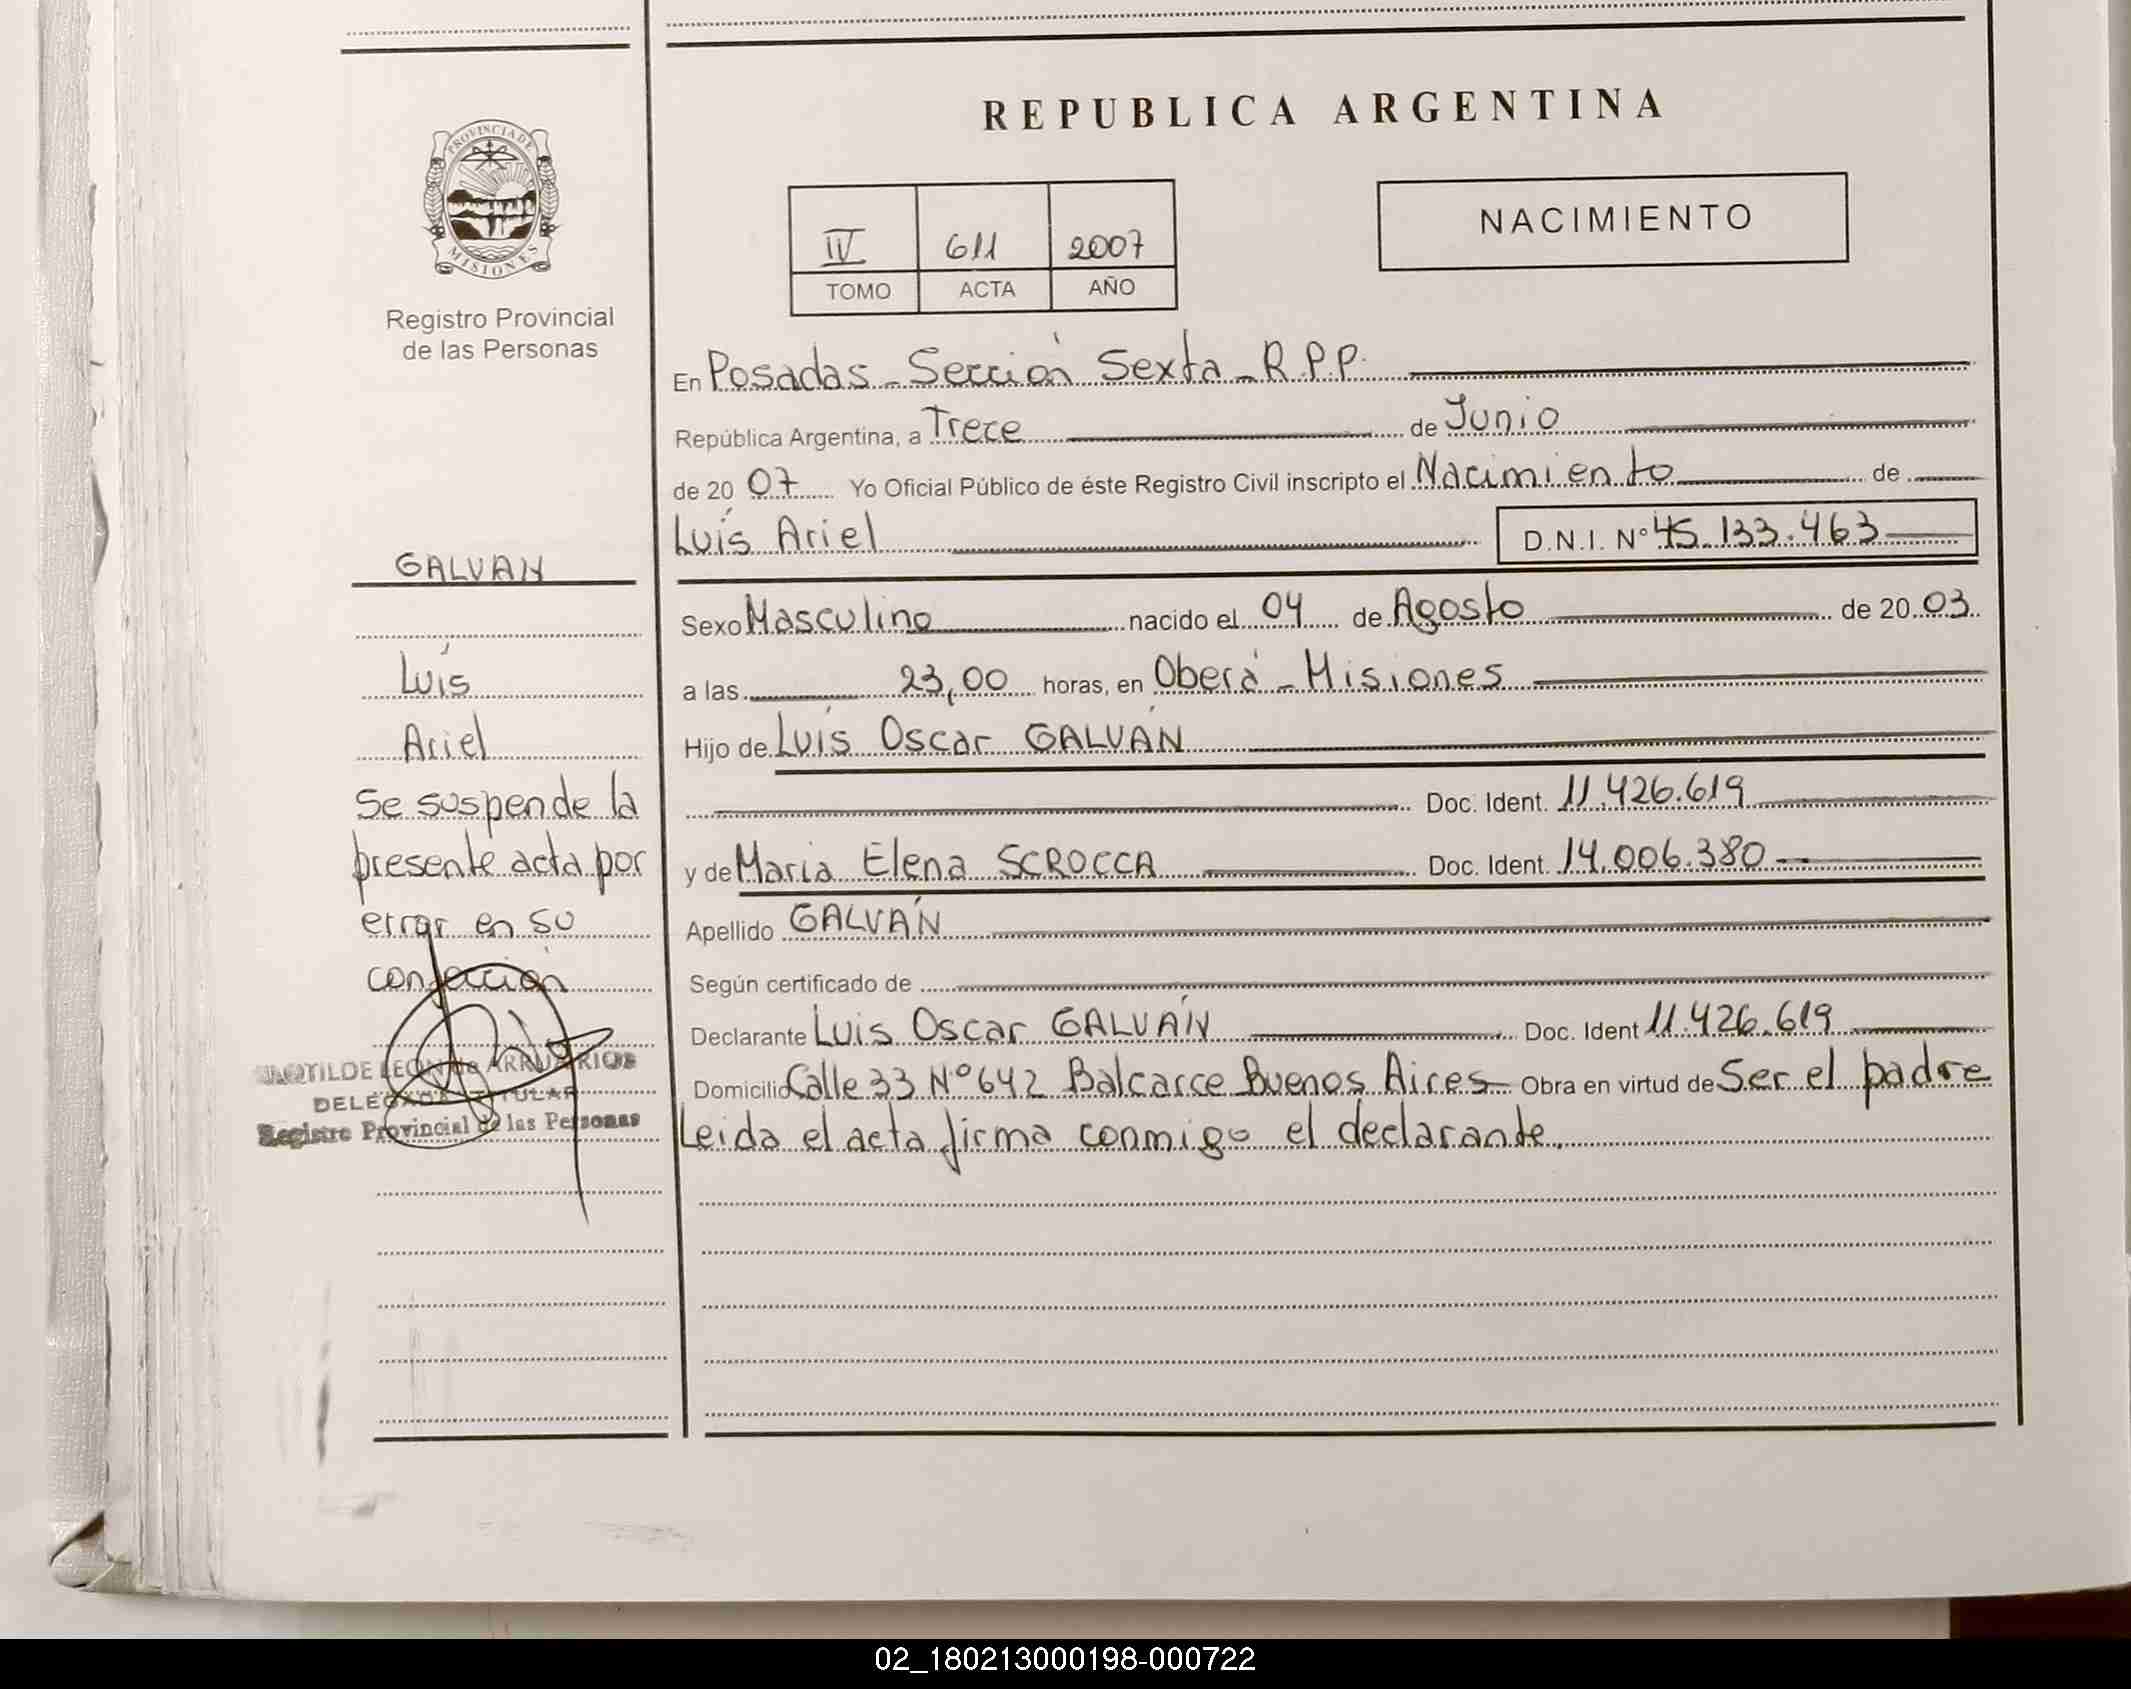 PROVINCIA DE
MISIONES
Registro Provincial
de las Personas
GALVAN
Luís
Ariel
Se suspende la
presente acta por
error en su
confección
LEON de ARRUARIOS
DELEGADA TITULAR
Registro Provincial de las Personas
REPUBLICA ARGENTINA
IV 611 2007
TOMO ACTA AÑO
NACIMIENTO
En Posadas - Sección Sexta - R.P.P.
República Argentina, a Trece de Junio
de 20 07 Yo Oficial Público de éste Registro Civil inscripto el Nacimiento de
Luís Ariel D.N.I. Nº 45.133.463
Sexo Masculino nacido el 04 de Agosto de 20 03
a las 23,00 horas, en Oberá - Misiones
Hijo de Luís Oscar GALVÁN
Doc. Ident. 11.426.619
y de Maria Elena SCROCCA Doc. Ident. 14.006.380
Apellido GALVÁN
Según certificado de
Declarante Luis Oscar GALVÁN Doc. Ident 11.426.619
Domicilio Calle 33 Nº 642 Balcarce Buenos Aires Obra en virtud de Ser el padre
Leida el acta firma conmigo el declarante.
02_180213000198-000722